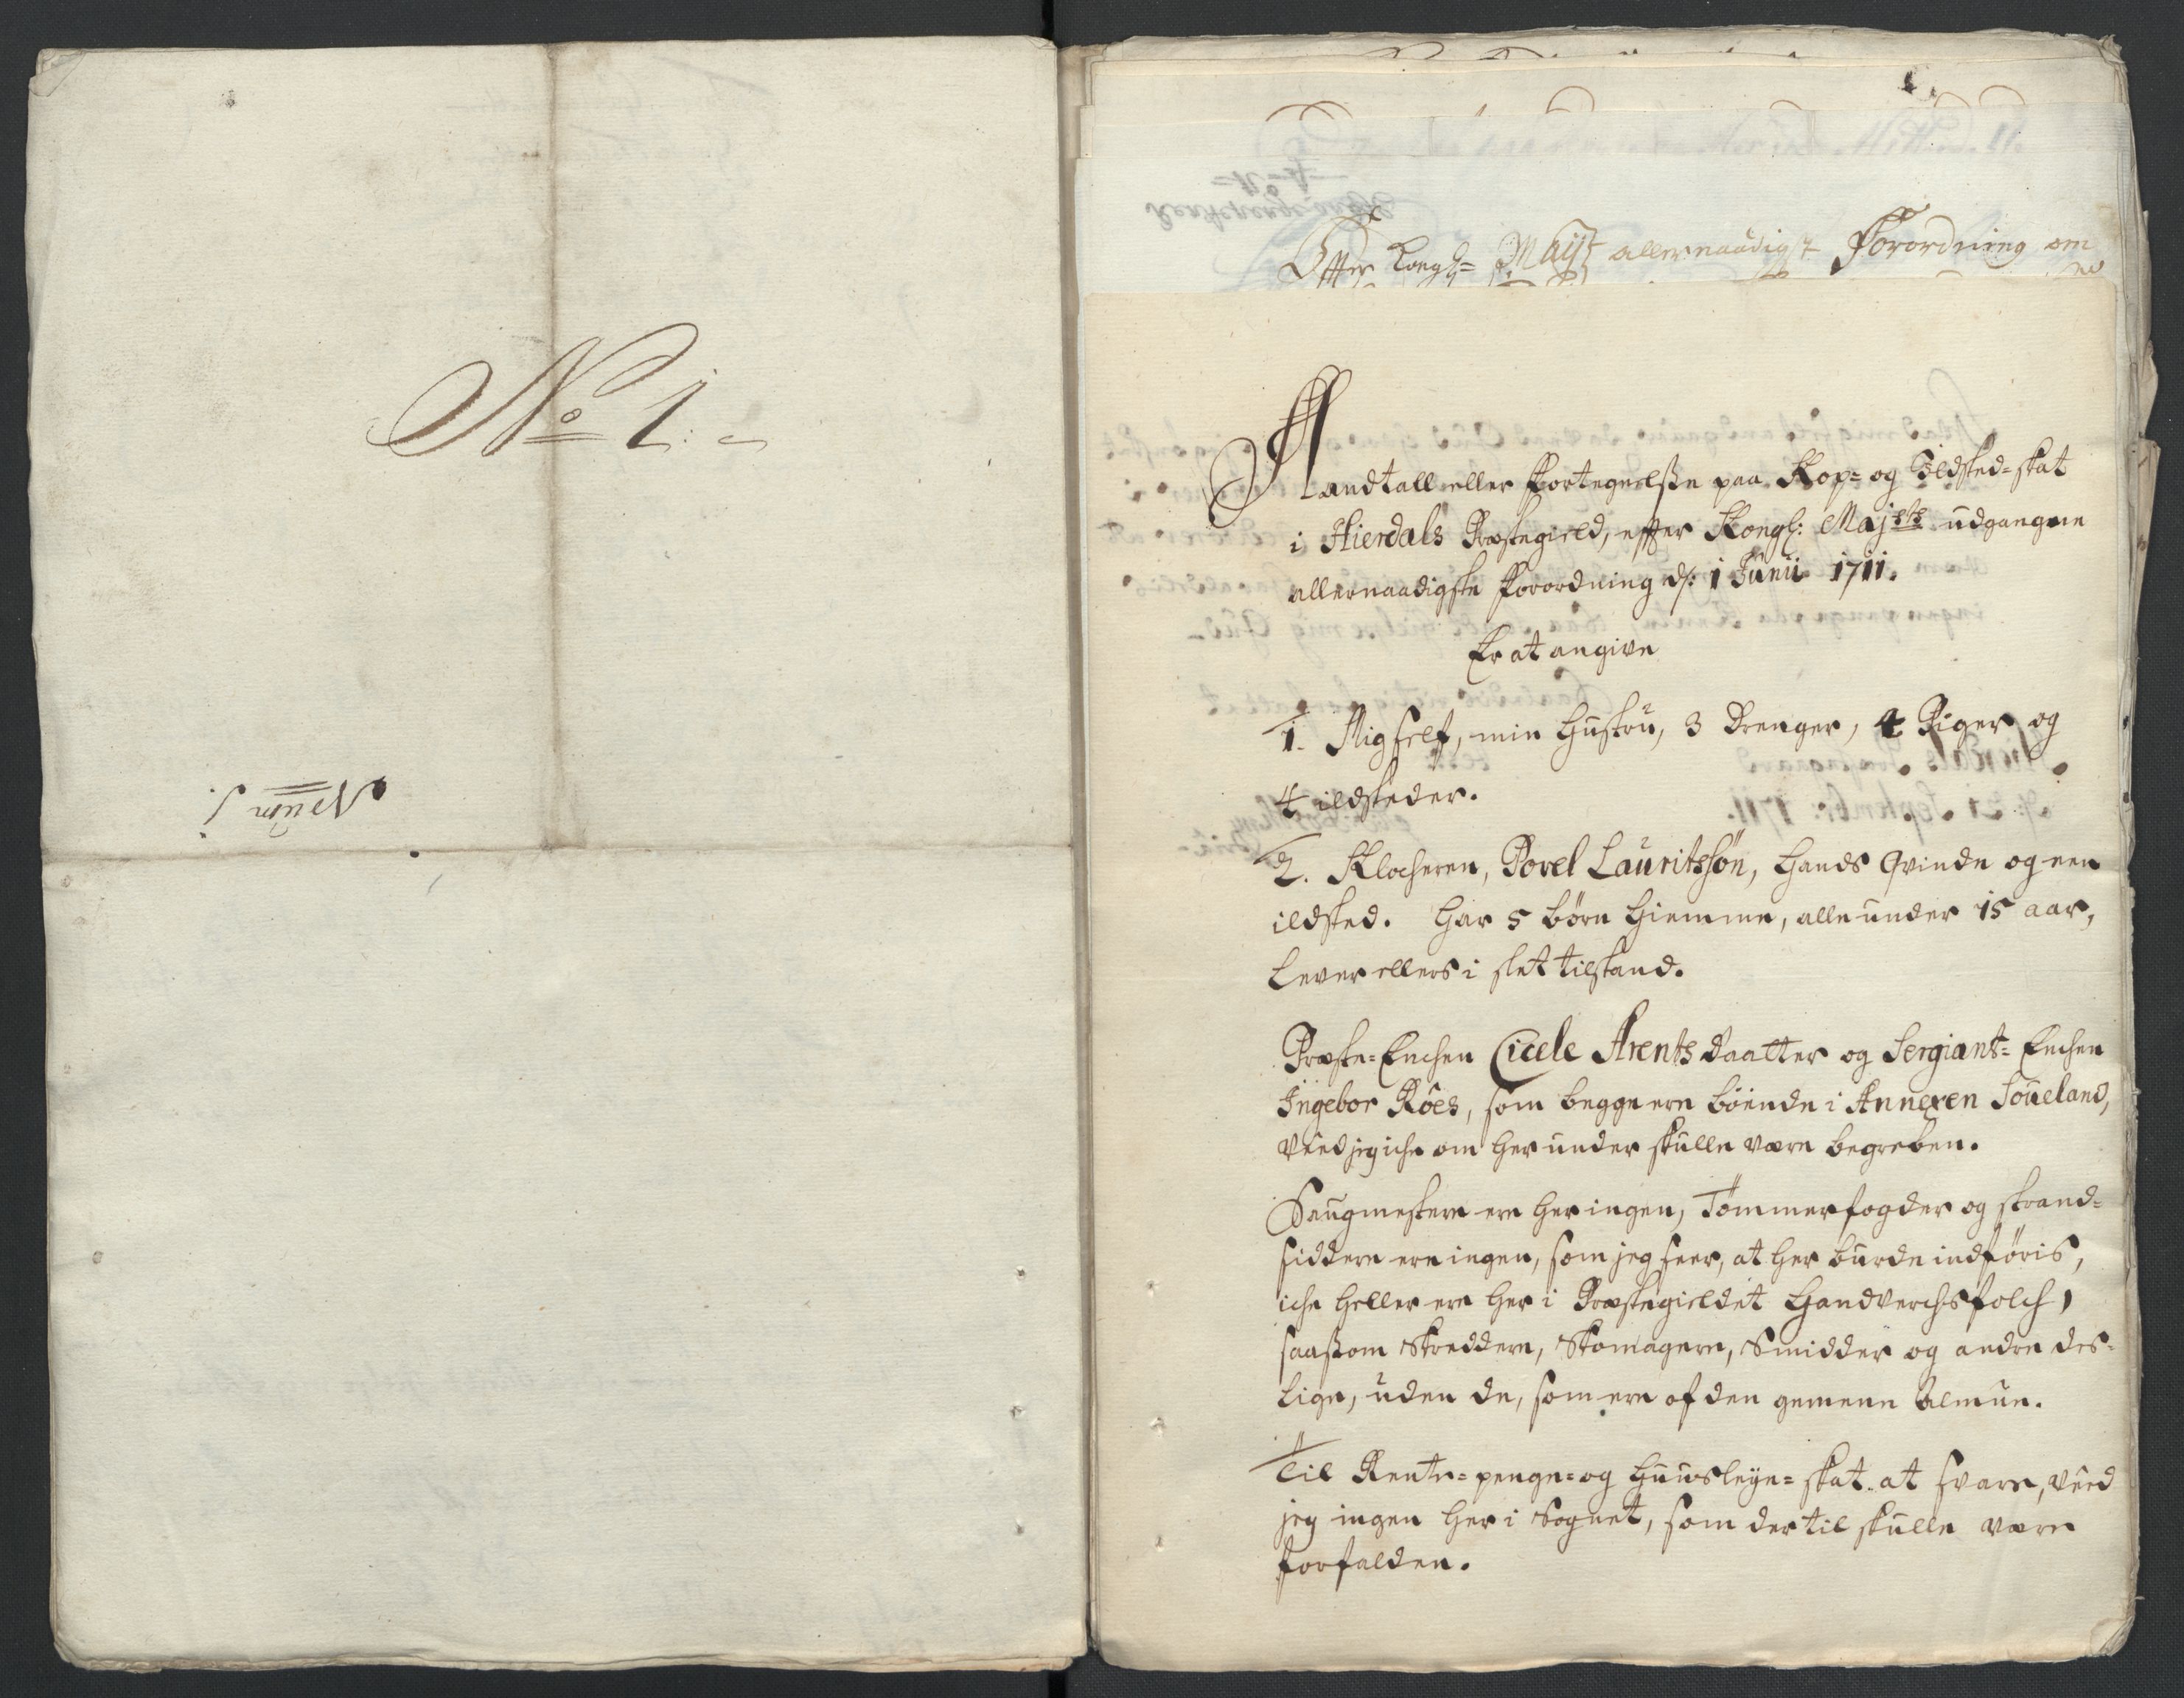 No 1.
Num 1.
Efter Kongl= Mayt allernaadigst Forordning om
Mandtall eller Fortegnelsse paa Kop= og Ildsted=skat
i Hierdals Præstegield, effter Kongl: Majsts udgangne
allernaadigste Forordning d: 1 Junii 1711.
Er at angive
1. Mig self, min Hustru, 3 Drenger, 4 Piger og
4 ildsteder.
2. Klocheren, Povel Lauritssøn, hands Qvinde og een
ildsted. Har 5 børn hiemme, alle under 15 aar,
Lever ellers i slet tilstand.
Præste=Enchen Cicele Arents daatter og Sergiant=Enchen
Ingebor Röes, som begge ere böende i Annexen Soueland,
veed jeg iche om her under skulle være begreben.
Saugmestere ere her ingen, Tömmerfogder og strand=
siddere ere ingen, som jeg seer, at her burde indføris,
iche heller ere her i Præstegieldet Handverchsfolch,
saasom Skreddere, Skomagere, Smidder og andre des=
lige, uden de, som ere af den gemene Almue.
Til Rente=penge= og Huusleye=skat at svare, veed
jeg ingen her i Sognet, som der til skulle være
forfalden.